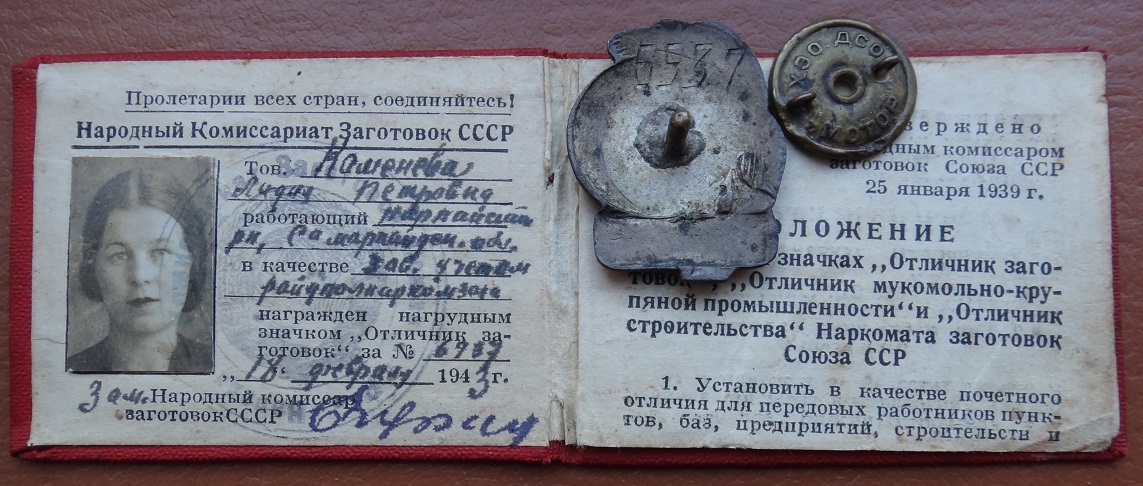 Пролетарии всех стран, соединяйтесь!
Народный Комиссариат Заготовок СССР
Тов. Каменева
Лидия Петровна
работающий
рн, Самарканден. обл.
в качестве Зав. учетом
райуполнаркомзага
награжден нагрудным
значком „Отличник за-
готовок“ за №
„18“ февраля 1943 г.
Зам. Народный комиссар
заготовок СССР
6937
УЗО. ДСО
верждено
дным комиссаром
заготовок Союза ССР
25 января 1939 г.
ЛОЖЕНИЕ
значках „Отличник заго-
товок“, „Отличник мукомольно-кру-
пяной промышленности“ и „Отличник
строительства“ Наркомата заготовок
Союза ССР
1. Установить в качестве почетного
отличия для передовых работников пунк-
тов, баз, предприятий, строительств и